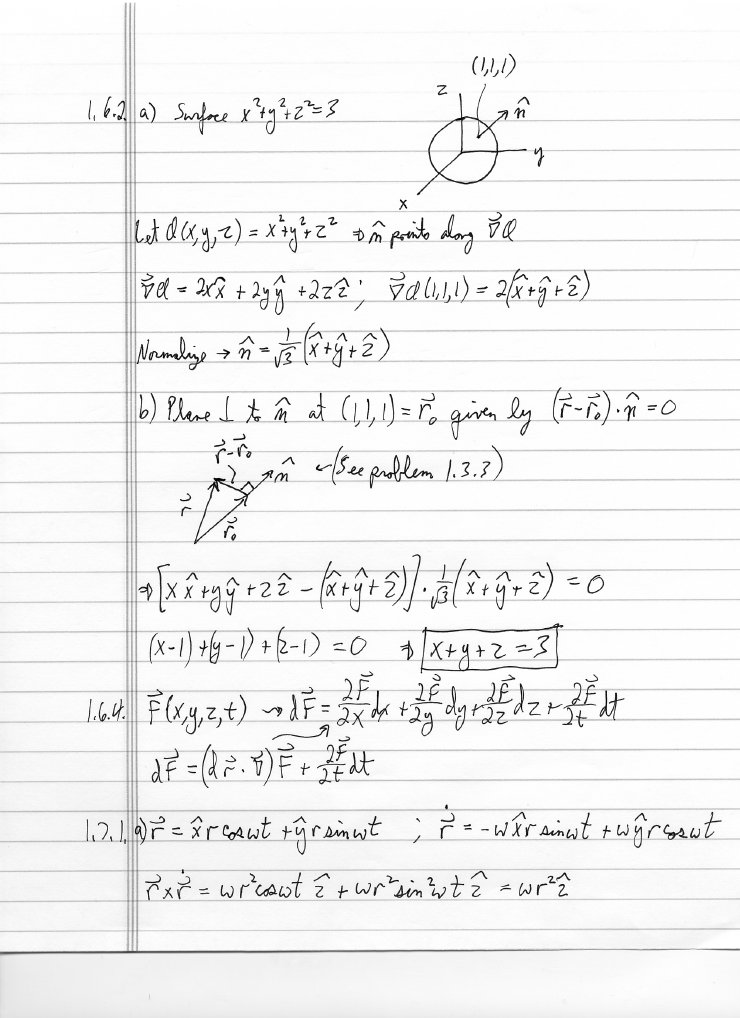 (1,1,1)
z
n̂
1.6.2 a) Surface x²+y²+z²=3
y
x
Let φ(x,y,z) = x²+y²+z² ⇒ n̂ points along ∇⃗φ
∇⃗φ = 2xx̂ + 2yŷ + 2zẑ ; ∇⃗φ(1,1,1) = 2(x̂+ŷ+ẑ)
Normalize → n̂ = 1/√3 (x̂+ŷ+ẑ)
b) Plane ⊥ to n̂ at (1,1,1) = r⃗₀ given by (r⃗-r⃗₀)·n̂ = 0
r⃗-r⃗₀
n̂ ← (See problem 1.3.3)
r⃗
r⃗₀
⇒ [xx̂+yŷ+zẑ - (x̂+ŷ+ẑ)]·1/√3(x̂+ŷ+ẑ) = 0
(x-1)+(y-1)+(z-1) = 0 ⇒ x+y+z=3
1.6.4. F⃗(x,y,z,t) ⇝ dF⃗ = ∂F⃗/∂x dx + ∂F⃗/∂y dy + ∂F⃗/∂z dz + ∂F⃗/∂t dt
dF⃗ = (dr⃗·∇⃗)F⃗ + ∂F⃗/∂t dt
1.7.1. a) r⃗ = x̂r cosωt + ŷr sinωt ; ṙ⃗ = -ωx̂r sinωt + ωŷr cosωt
r⃗×ṙ⃗ = ωr²cosωt ẑ + ωr²sin²ωt ẑ = ωr²ẑ